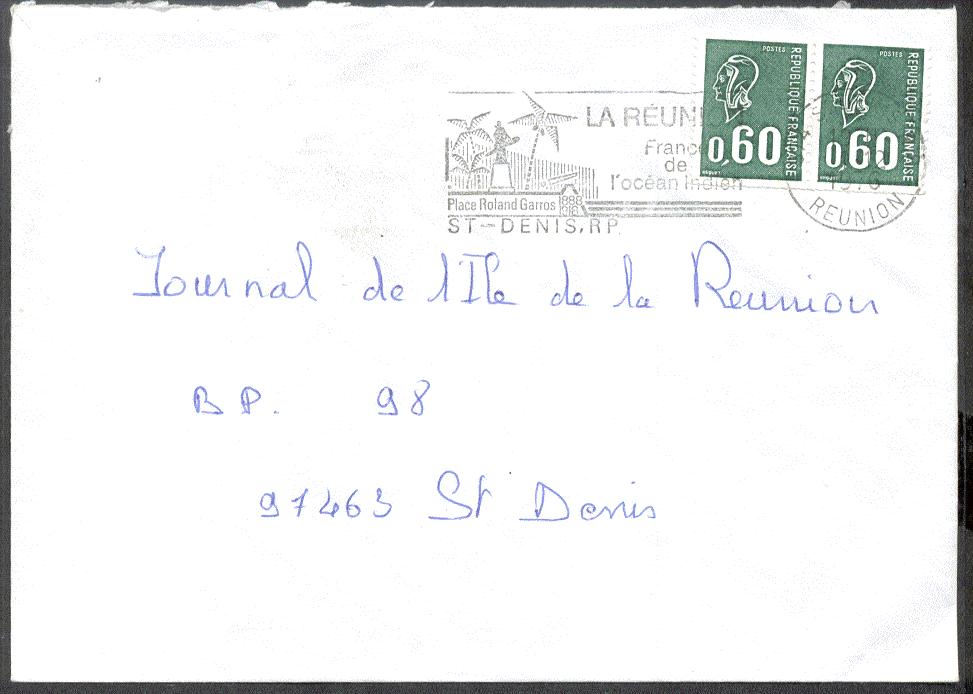 POSTES
REPUBLIQUE FRANÇAISE
0,60
BEQUET
POSTES
REPUBLIQUE FRANÇAISE
0,60
BEQUET
LA RÉUN
France
de
l'océan Indien
Place Roland Garros 1888 1918
ST-DENIS.RP
REUNION
Journal de l'Ile de la Reunion
BP. 98
97463 St Denis